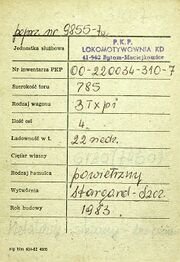 poprz. nr. 9855-tw
P.K.P.
LOKOMOTYWOWNIA KD
41-902 Bytom-Maciejkowice
Jednostka służbowa
Nr inwentarza PKP 00-220034-310-7
Szerokość toru 785
Rodzaj wagonu 3Txpś
Ilość osi 4
Ładowność w t. 22
Ciężar własny
Rodzaj hamulca powietrzny
Wytwórnia Stargard-Szcz.
Rok budowy 1983